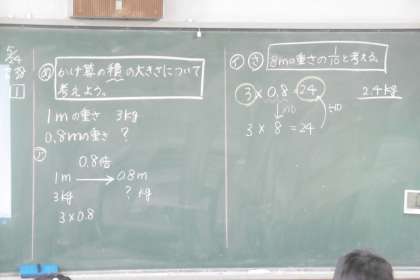 5/24
1
め かけ算の積の大きさについて
考えよう。
1mの重さ 3kg
0.8mの重さ ?
ア
0.8倍
1m → 0.8m
3kg ? kg
3×0.8
イ さ 8mの重さの1/10と考える
3×0.8=24
↓×10 ÷10
3×8=24
2.4kg